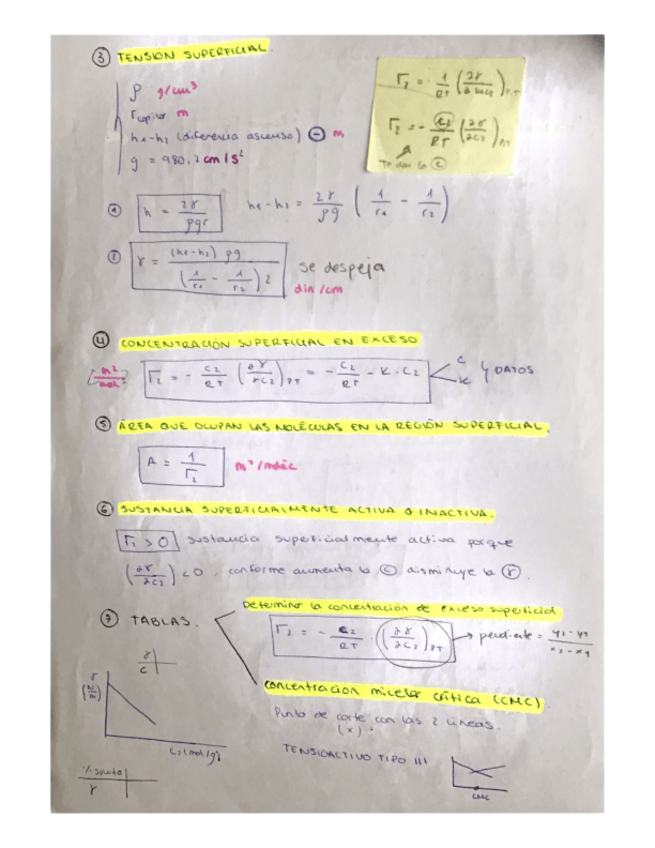 ③ TENSIÓN SUPERFICIAL.
ρ g/cm³
r capilar m
h₁-h₂ (diferencia ascenso) ⊖ m
g = 980,7 cm/s²
Γ₂ = - 1/RT (∂γ/∂ ln c₂)P,T
Γ₂ = - c₂/RT (∂γ/∂c₂)P,T
Te dan la ©
① h = 2γ/ρgr h₁-h₂ = 2γ/ρg (1/r₁ - 1/r₂)
② γ = (h₁-h₂) ρg / (1/r₁ - 1/r₂) 2 se despeja
din/cm
④ CONCENTRACIÓN SUPERFICIAL EN EXCESO
[m²/mol] Γ₂ = - c₂/RT (∂γ/∂c₂)PT = - c₂/RT - K · c₂ C K y DATOS
⑤ ÁREA QUE OCUPAN LAS MOLÉCULAS EN LA REGIÓN SUPERFICIAL.
A = 1/Γ₂ m²/moléc
⑥ SUSTANCIA SUPERFICIALMENTE ACTIVA O INACTIVA.
Γ₂ > 0 sustancia superficialmente activa porque
(∂γ/∂c₂) < 0, conforme aumenta la © disminuye la γ.
Determino la concentración de exceso superficial
⑦ TABLAS.
Γ₂ = - c₂/RT · (∂γ/∂c₂)PT → pendiente = y₂-y₁/x₂-x₁
γ
C
γ (N/m)
C₂ (mol/g)
concentración micelar crítica (CMC).
Punto de corte con las 2 líneas.
(x)
TENSIOACTIVO TIPO III
CMC
% soluto
γ